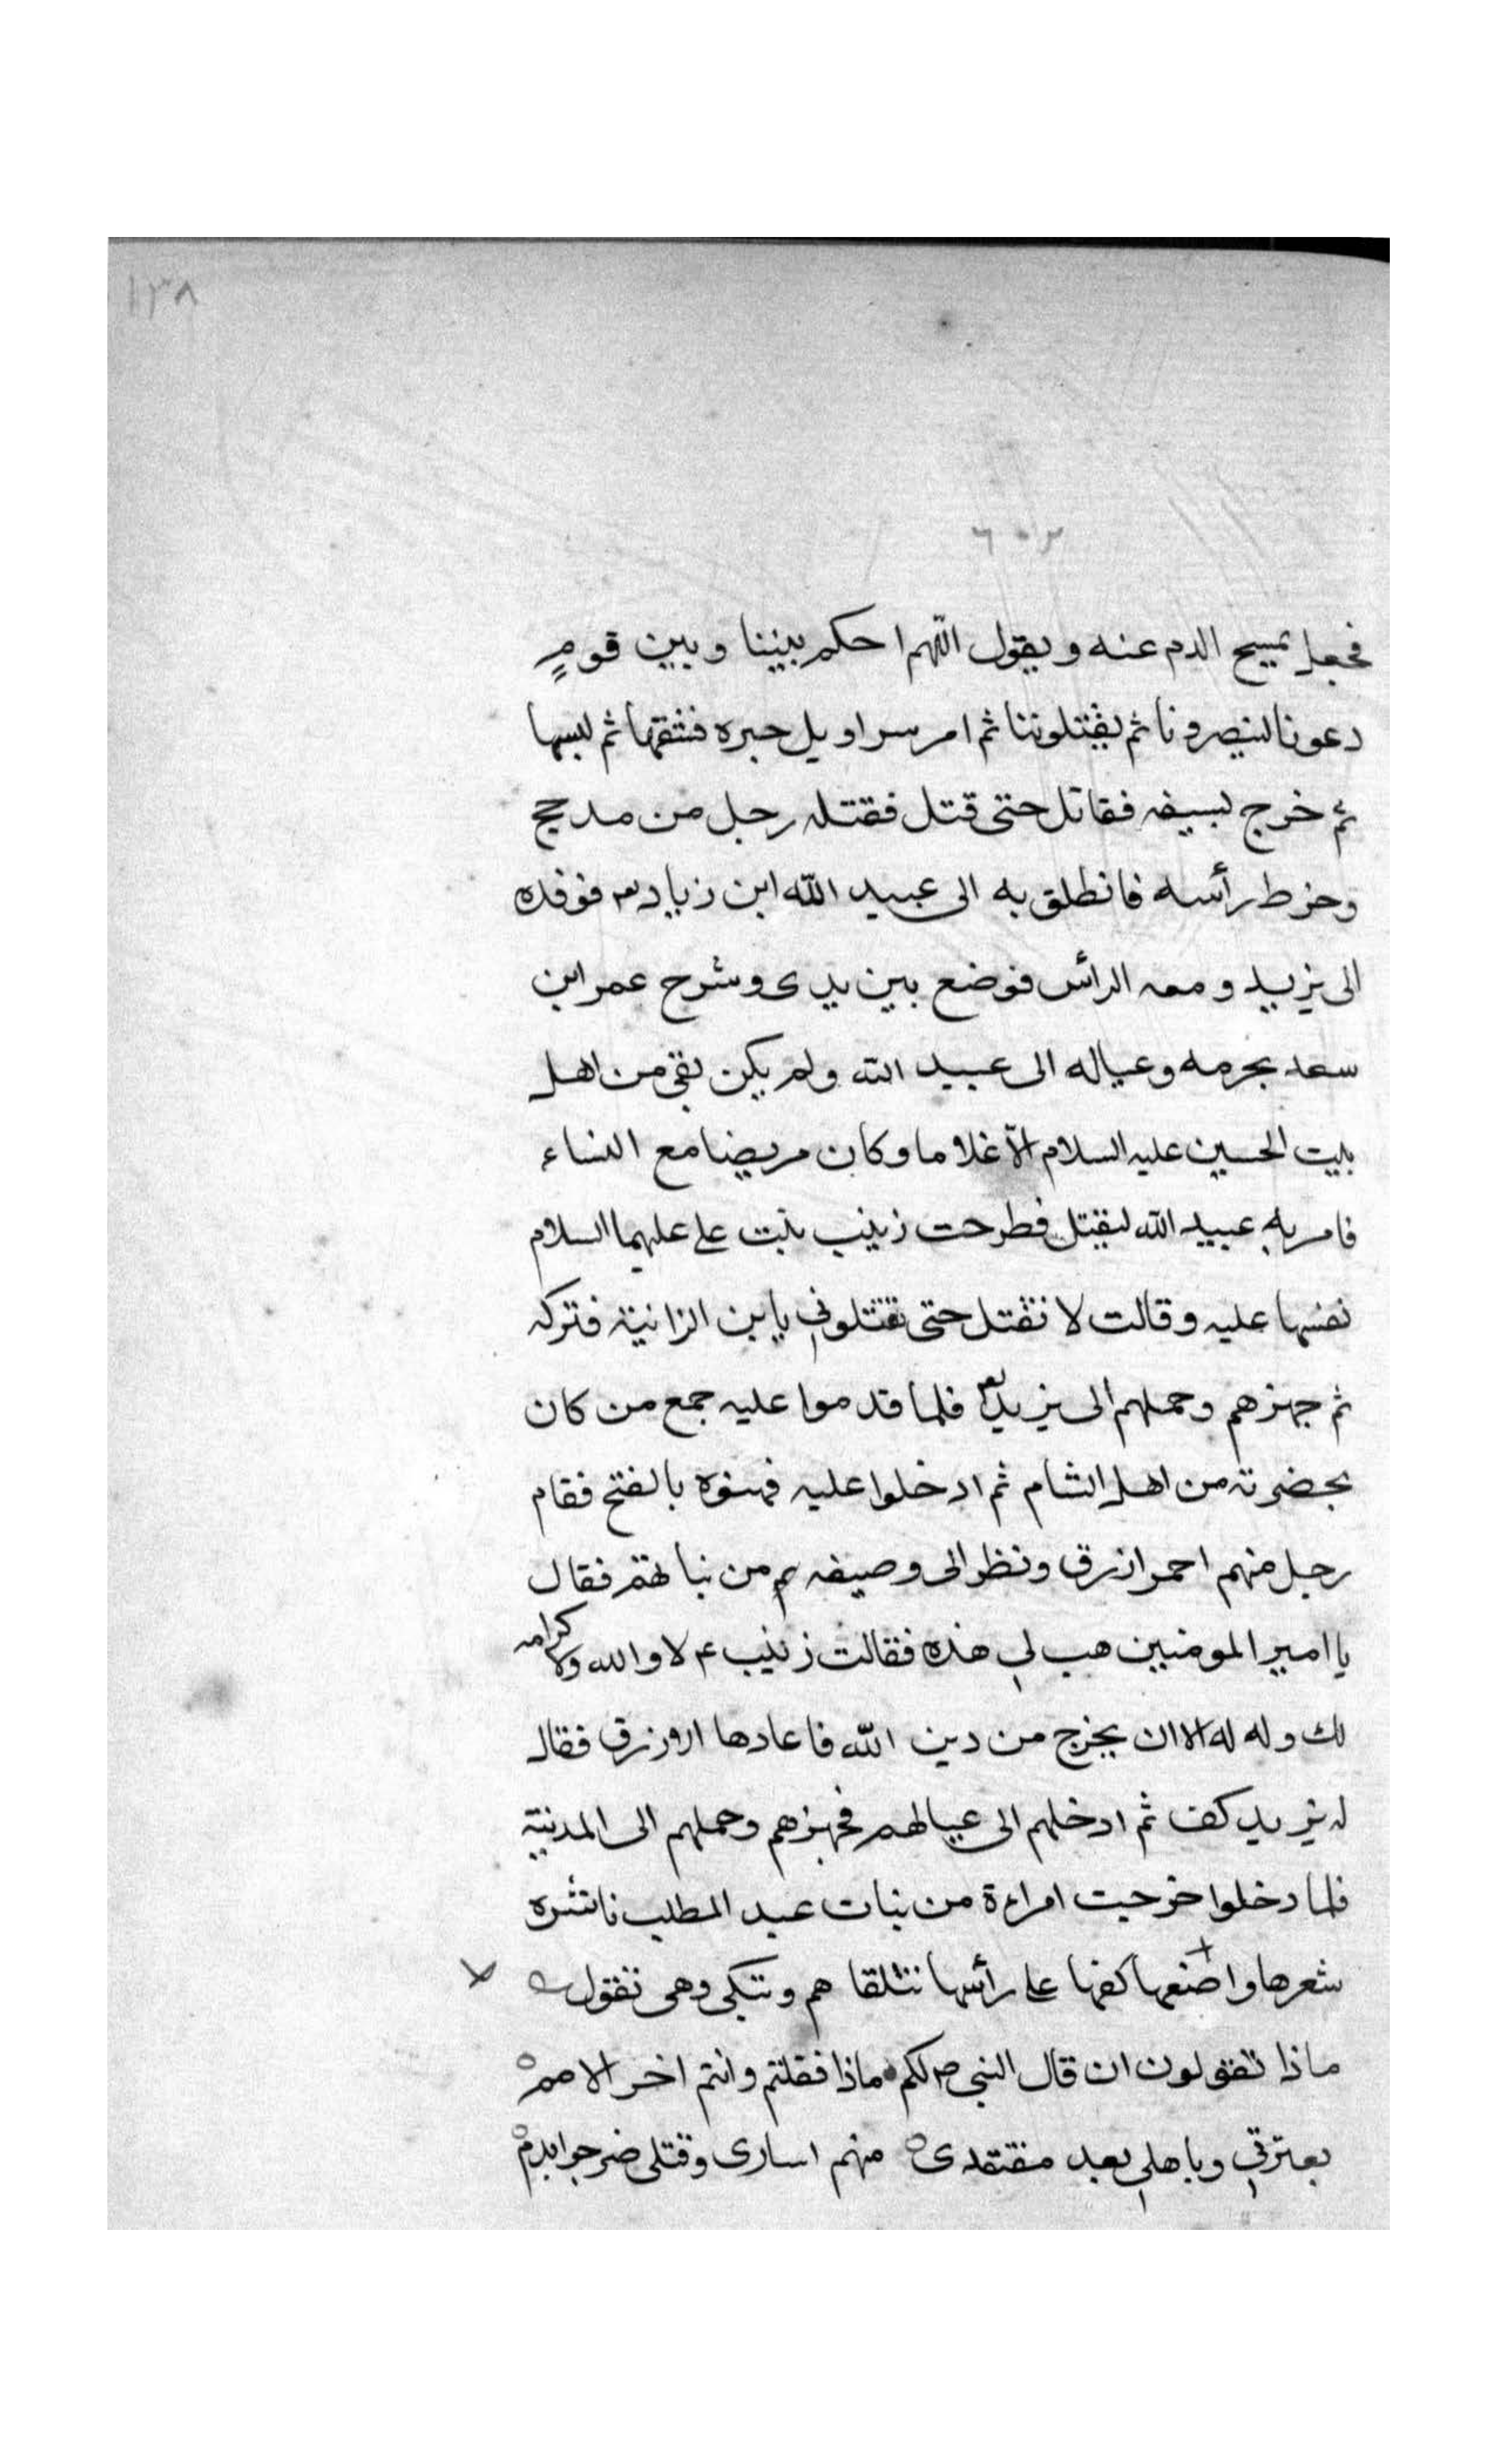 ١٣٨
٦٠٢
فجعل يمسح الدم عنه ويقول اللهم احكم بيننا وبين قومٍ
دعونا لينصرونا ثم يقتلوننا ثم امر سراويل حبره فشقها ثم لبسها
ثم خرج بسيفه فقاتل حتى قتل فقتله رجل من مدحج
وخرط رأسه فانطلق به الى عبيد الله ابن زياد فوفده
الى يزيد ومعه الرأس فوضع بين يدى وشرح عمر ابن
سعد بحرمه وعياله الى عبيد الله ولم يكن بقى من اهل
بيت الحسين عليه السلام الّا غلاما وكان مريضا مع النساء
فامر به عبيد الله ليقتل فطرحت زينب بنت على عليهما السلام
نفسها عليه وقالت لا تقتل حتى تقتلوني يابن الزانية فتركه
ثم جهزهم وحملهم الى يزيد فلما قدموا عليه جمع من كان
بحضرته من اهل الشام ثم ادخلوا عليه فهنوه بالفتح فقام
رجل منهم احمر ازرق ونظر الى وصيفه من بناتهم فقال
يا امير المومنين هب لي هذه فقالت زينب ع لا والله ولا كرامه
لك وله له الا ان يخرج من دين الله فاعادها ازرق فقال
له يزيد كف ثم ادخلهم الى عيالهم فجهزهم وحملهم الى المدينة
فلما دخلوا خرجت امراءة من بنات عبد المطلب ناشره
شعرها واضعها كفها على رأسها تتلقاهم وتبكى وهى تقول
ماذا تقولون ان قال النبى ص لكم ماذا فقلتم وانتم اخر الامم
بعترتي وباهلي بعد مفتقدى منهم اسارى وقتلى ضرجوا بدم